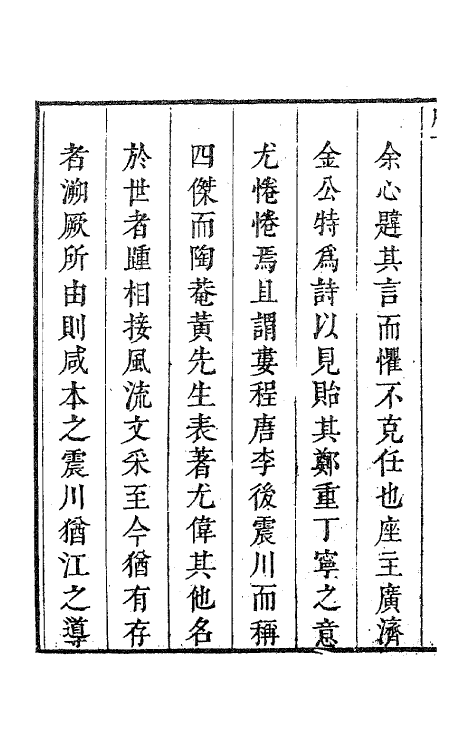 余心韙其言而懼不克任也座主廣濟
金公特爲詩以見貽其鄭重丁寧之意
尤惓惓焉且謂婁程唐李後震川而稱
四傑而陶菴黃先生表著尤偉其他名
於世者踵相接風流文采至今猶有存
者溯厥所由則咸本之震川猶江之導